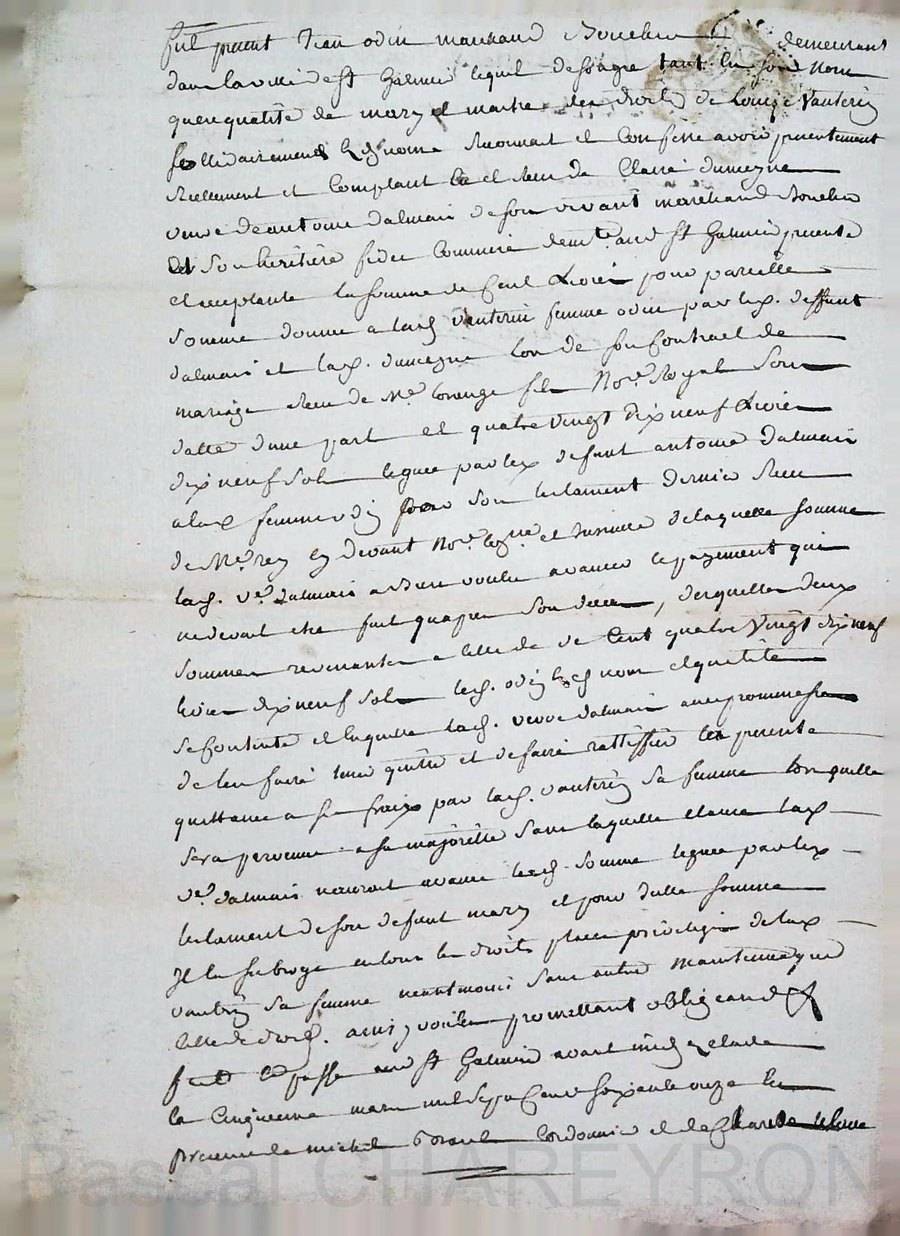 fut present Jean odin marchand Boucher demeurant
dans la ville de st Galmier lequel de sagre tant en son nom
qu'en qualité de mary et maitre des droits de Louise Vanterin
sollidairement reconnoit et confesse avoir presentement
reellement et comptant eu et receu de Claire dumeyne
veuve de antoine dalmais de son vivant marchand Boucher
et son heritiere fidei commise demte. aud st Galmier presente
et acceptante la somme de Cent Livres pour pareille
somme donnée a lad. Vanterin femme odin par led. deffunt
dalmais et lad. dumeyne lors de son Contract de
mariage receu de Me. fils Nore. Royal sous
datte d'une part et quatre vingt dix neuf Livres
dix neuf sols leguée par led. defunt antoine dalmais
a lad. femme odin par son testament dernier receu
de Me. rey cy devant Nore. et de laquelle somme
lad. ve. dalmais a bien voulu avancer le payement qui
ne devoit etre fait qu'apres son deces, desquelles deux
sommes revenantes a celle de Cent quatre Vingt dix neuf
livres dix neuf sols led. odin esd. nom et qualité
se contente et en quitte lad. veuve dalmais avec promesse
de l'en faire tenir quitte et de faire rattiffier la presente
quittance a ses fraix par lad. vanterin sa femme lors quelle
sera parvenue a sa majorité sans laquelle clause lad.
ve. dalmais n'auroit avancé lad. somme leguée par led.
testament de son defunt mary et pour d'elle somme
Il la subroge en tous les droits place privilege de lad.
vanterin sa femme neantmoins sans autre maintenue que
celle de droit. ainsy voulu promettant obligeant &
fait et passé aud st Galmier avant midy
le Cinquieme mars mil sept cent soixante onze en
presence de michel cordonnier et de Claude
Pascal CHAREYRON